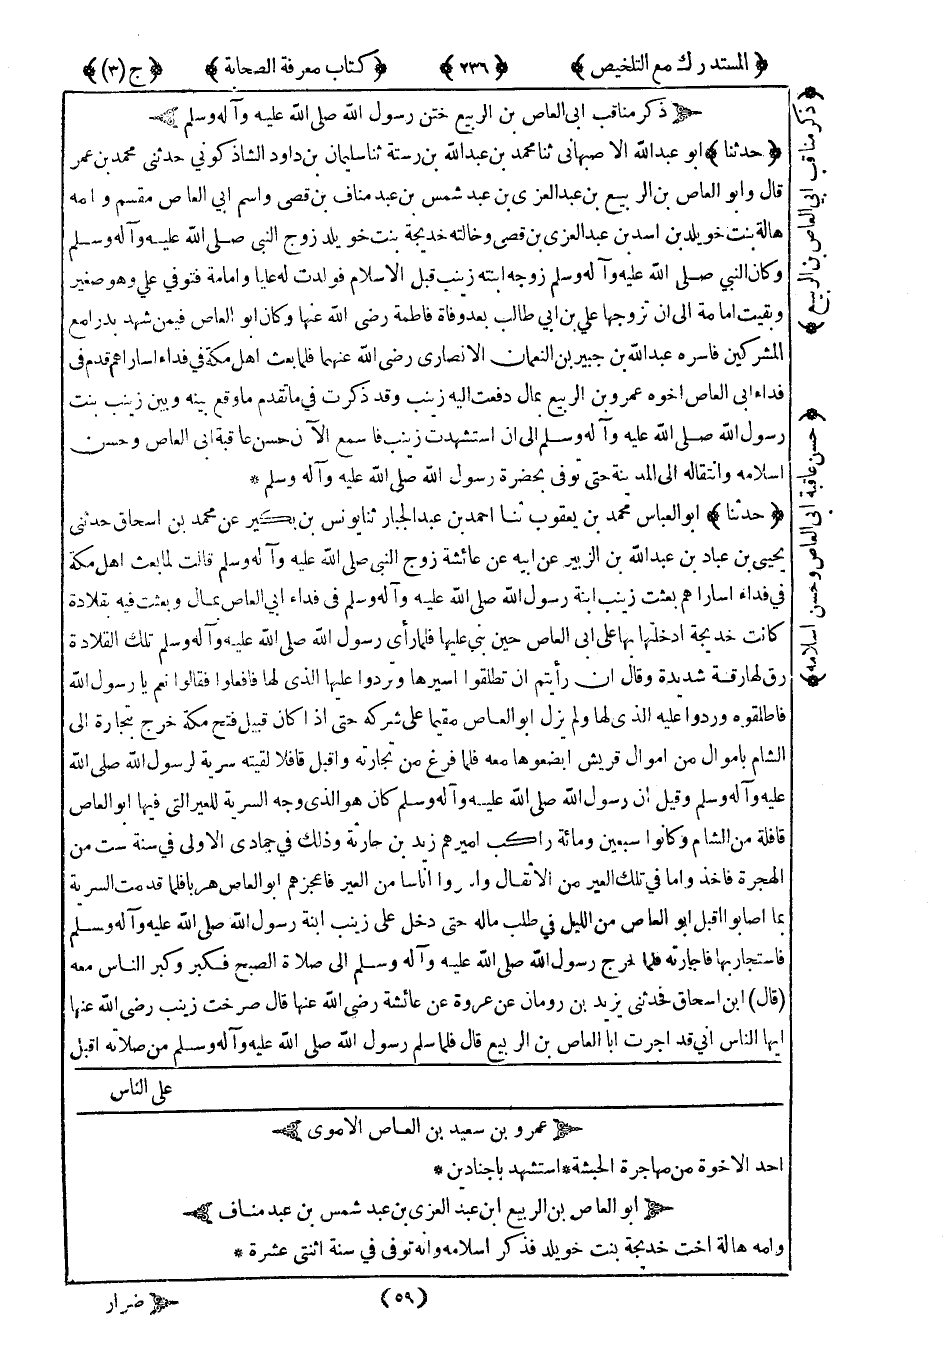 ﴿ المستدرك مع التلخيص ﴾ ﴿ ٢٣٦ ﴾ ﴿ كتاب معرفة الصحابة ﴾ ﴿ ج (٣) ﴾
ذكر مناقب ابى العاص بن الربيع ختن رسول الله صلى الله عليه وآله وسلم
﴿ حدثنا ﴾ ابو عبدالله الاصبهانى ثنا محمد بن عبدالله بن رستة ثنا سليمان بن داود الشاذكوني حدثنى محمد بن عمر
قال وابو العاص بن الربيع بن عبد العزى بن عبد شمس بن عبد مناف بن قصى واسم ابي العاص مقسم وامه
هالة بنت خويلد بن اسد بن عبد العزى بن قصى وخالته خديجة بنت خويلد زوج النبي صلى الله عليه وآله وسلم
وكان النبي صلى الله عليه وآله وسلم زوجه ابنته زينب قبل الاسلام فولدت له عليا وامامة فتوفي علي وهو صغير
وبقيت امامة الى ان تزوجها علي بن ابي طالب بعد وفاة فاطمة رضى الله عنها وكان ابو العاص فيمن شهد بدرا مع
المشركين فاسره عبدالله بن جبير بن النعمان الانصارى رضى الله عنهما فلما بعث اهل مكة في فداء اساراهم قدم فى
فداء ابى العاص اخوه عمرو بن الربيع بمال دفعت اليه زينب وقد ذكرت في ما تقدم ما وقع بينه وبين زينب بنت
رسول الله صلى الله عليه وآله وسلم الى ان استشهدت زينب فاسمع الآن حسن عاقبة ابى العاص وحسن
اسلامه وانتقاله الى المدينة حتى توفى بحضرة رسول الله صلى الله عليه وآله وسلم *
﴿ حدثنا ﴾ ابو العباس محمد بن يعقوب ثنا احمد بن عبد الجبار ثنا يونس بن بكير عن محمد بن اسحاق حدثنى
يحيى بن عباد بن عبدالله بن الزبير عن ابيه عن عائشة زوج النبى صلى الله عليه وآله وسلم قالت لما بعث اهل مكة
في فداء اساراهم بعثت زينب ابنة رسول الله صلى الله عليه وآله وسلم فى فداء ابي العاص بمال وبعثت فيه بقلادة
كانت خديجة ادخلتها بها على ابى العاص حين بني عليها فلما رأى رسول الله صلى الله عليه وآله وسلم تلك القلادة
رق لها رقة شديدة وقال ان رأيتم ان تطلقوا اسيرها وتردوا عليها الذى لها فافعلوا فقالوا نعم يا رسول الله
فاطلقوه وردوا عليه الذى لها ولم يزل ابو العاص مقيما على شركه حتى اذا كان قبيل فتح مكة خرج بتجارة الى
الشام باموال من اموال قريش ابضعوها معه فلما فرغ من تجارته واقبل قافلا لقيته سرية لرسول الله صلى الله
عليه وآله وسلم وقيل ان رسول الله صلى الله عليه وآله وسلم كان هو الذى وجه السرية للعير التي فيها ابو العاص
قافلة من الشام وكانوا سبعين ومائة راكب اميرهم زيد بن حارثة وذلك في جمادى الاولى في سنة ست من
الهجرة فاخذوا ما في تلك العير من الاثقال واسروا اناسا من العير فاعجزهم ابو العاص هربا فلما قدمت السرية
بما اصابوا اقبل ابو العاص من الليل في طلب ماله حتى دخل على زينب ابنة رسول الله صلى الله عليه وآله وسلم
فاستجار بها فاجارته فلما خرج رسول الله صلى الله عليه وآله وسلم الى صلاة الصبح فكبر وكبر الناس معه
(قال) ابن اسحاق فحدثنى يزيد بن رومان عن عروة عن عائشة رضى الله عنها قال صرخت زينب رضى الله عنها
ايها الناس انى قد اجرت ابا العاص بن الربيع قال فلما سلم رسول الله صلى الله عليه وآله وسلم من صلاته اقبل
على الناس
عمرو بن سعيد بن العاص الاموى
احد الاخوة من مهاجرة الحبشة * استشهد باجنادين *
ابو العاص بن الربيع ابن عبد العزى بن عبد شمس بن عبد مناف
وامه هالة اخت خديجة بنت خويلد فذكر اسلامه وانه توفى في سنة اثنتى عشرة *
(٥٩)
ضرار
﴿ ذكر مناقب ابى العاص بن الربيع ﴾
﴿ حسن عاقبة ابى العاص وحسن اسلامه ﴾